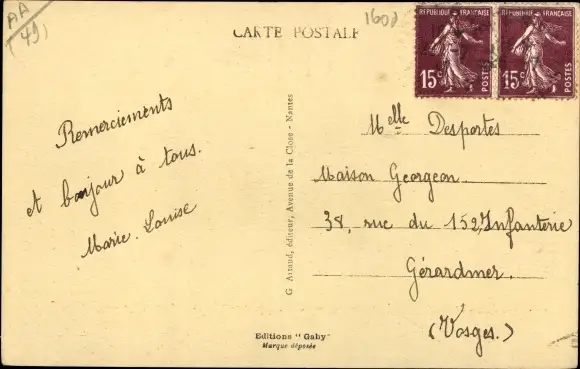 AA
(49)
CARTE POSTALE
RÉPUBLIQUE FRANÇAISE
15c
POSTES
RÉPUBLIQUE FRANÇAISE
15c
POSTES
Remerciements
et bonjour à tous.
Marie-Louise
G. Artaud, éditeur, Avenue de la Close - Nantes
Melle Desportes
Maison Georgeon
38, rue du 152, Infanterie
Gérardmer.
(Vosges.)
Editions "Gaby"
Marque déposée